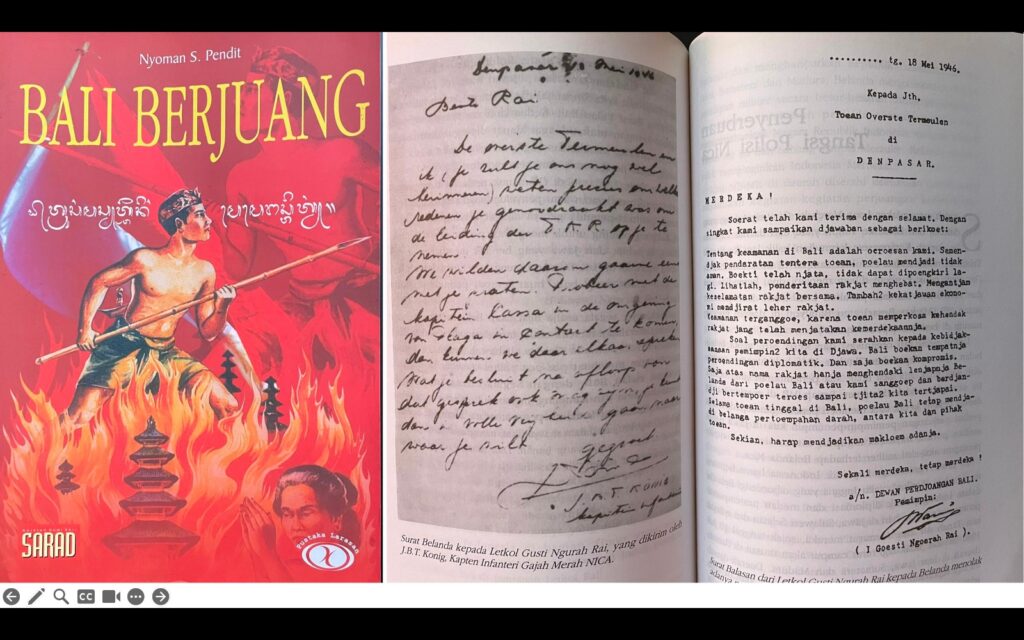 Nyoman S. Pendit
BALI BERJUANG
MAJALAH GUMI BALI
SARAD
Pustaka Larasan
Denpasar
Mei 1946
Beste Rai
De overste Termeulen en
ik (je zult je ons nog wel
herinneren) weten precies om welke
redenen je genoodzaakt was om
de leiding der T.K.R. op je te
nemen.
We wilden daarom gaarne eens
met je praten. Probeer met de
kapitein Cassa in de omgeving
van Plaga in contact te komen,
dan kunnen we daar elkaar spreken
Mat je besluit na afloop van
dat gesprek ook mag zijn, je kunt
dan in volle vrijheid gaan naar
waar je wilt
gegroet
J.B.T. König
kapitein infanterie
Surat Belanda kepada Letkol Gusti Ngurah Rai, yang dikirim oleh
J.B.T. Konig, Kapten Infanteri Gajah Merah NICA.
.......... tg. 18 Mei 1946.
Kepada Jth.
Toean Overste Termeulen
di
DENPASAR.
MERDEKA !
Soerat telah kami terima dengan selamat. Dengan
singkat kami sampaikan djawaban sebagai berikoet:
Tentang keamanan di Bali adalah oeroesan kami. Semen-
djak pendaratan tentera toean, poelau mendjadi tidak
aman. Boekti telah njata, tidak dapat dipoengkiri la-
gi. Lihatlah, penderitaan rakjat menghebat. Mengantjam
keselamatan rakjat bersama. Tambah2 kekatjauan ekono-
mi mendjirat leher rakjat.
Keamanan terganggoe, karena toean memperkosa kehendak
rakjat jang telah menjatakan kemerdekaannja.
Soal peroendingan kami serahkan kepada kebidjak-
sanaan pemimpin2 kita di Djawa. Bali boekan tempatnja
peroendingan diplomatik. Dan saja boekan kompromis.
Saja atas nama rakjat hanja menghendaki lenjapnja Be-
landa dari poelau Bali atau kami sanggoep dan berdjan-
dji bertempoer teroes sampai tjita2 kita tertjapai.
Selama toean tinggal di Bali, poelau Bali tetap mendja-
di belanga pertoempahan darah, antara kita dan pihak
toean.
Sekian, harap mendjadikan makloem adanja.
Sekali merdeka, tetap merdeka !
a/n. DEWAN PERDJOANGAN BALI.
Pemimpin:
( I Goesti Ngoerah Rai ).
Surat Balasan dari Letkol Gusti Ngurah Rai kepada Belanda menolak
CC